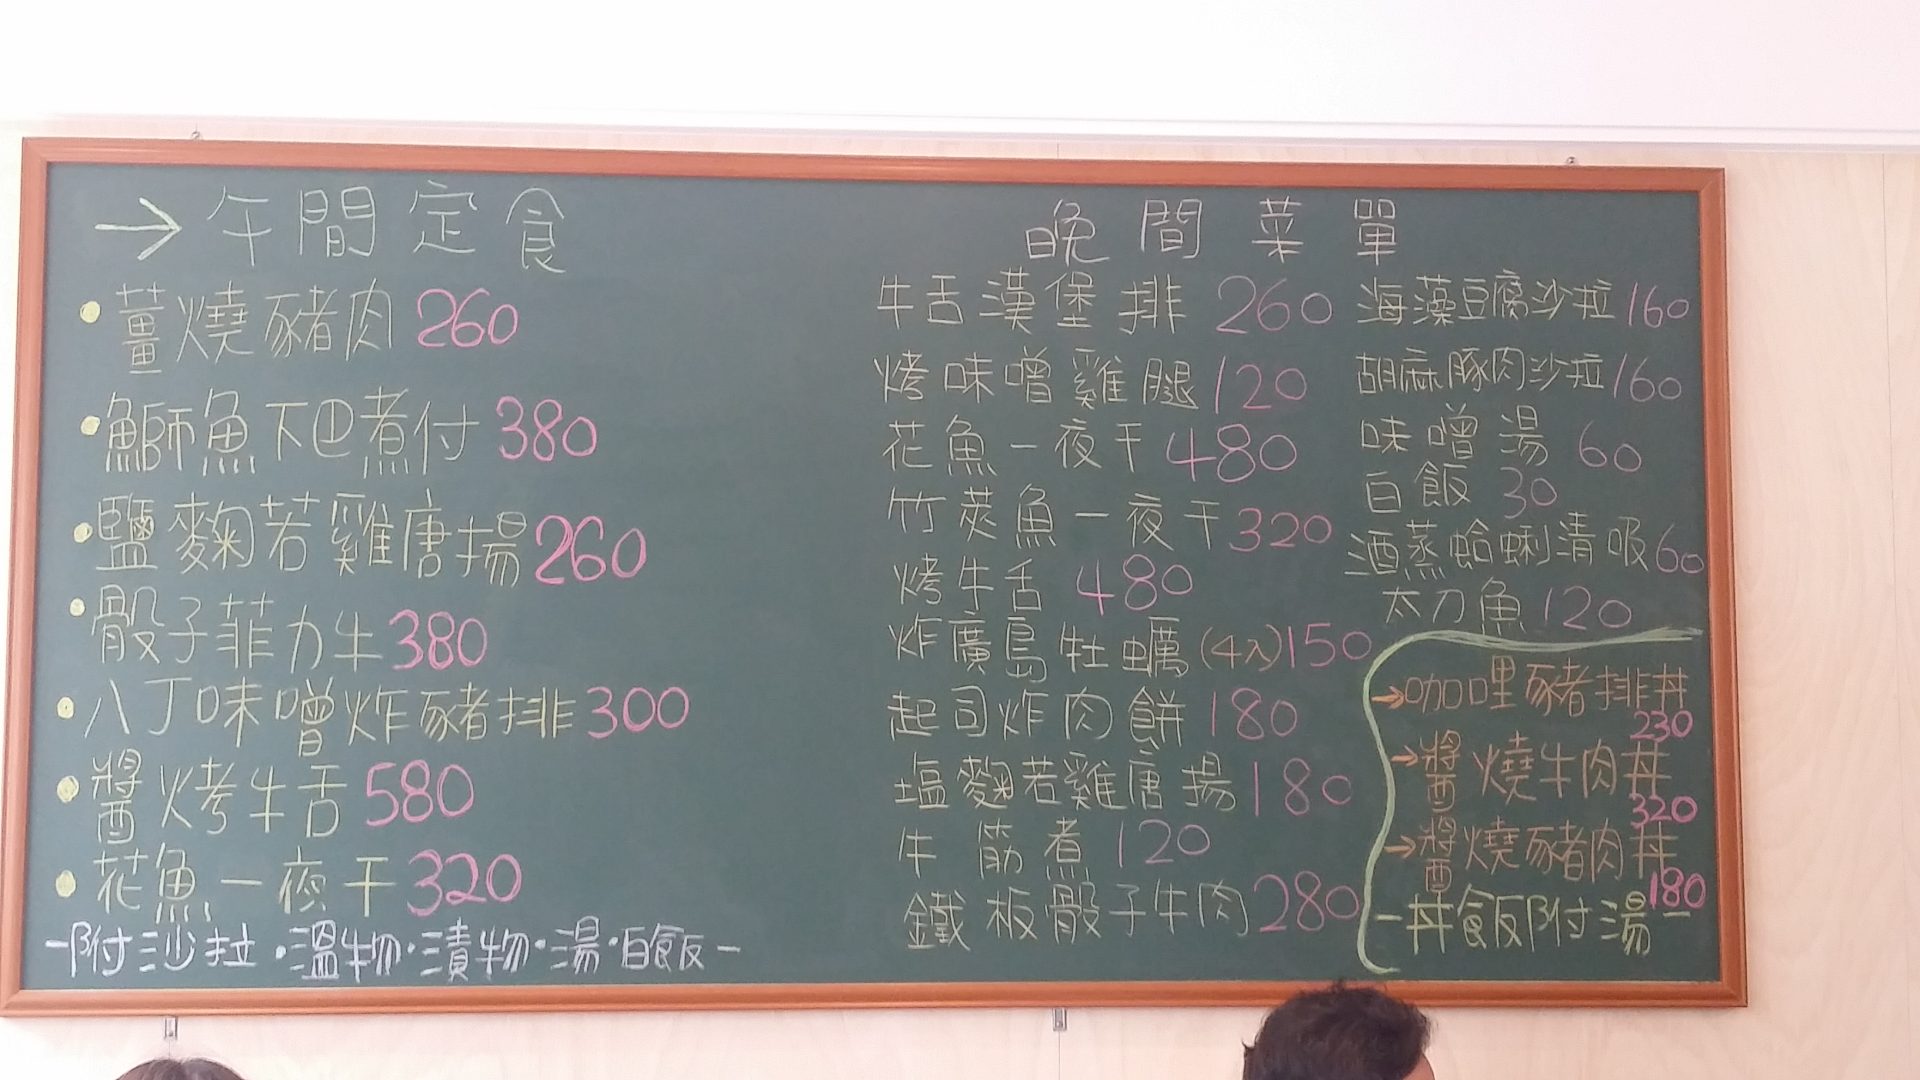 →午間定食
•薑燒豬肉 260
•鰤魚下巴煮付 380
•鹽麴若雞唐揚 260
•骰子菲力牛 380
•八丁味噌炸豬排 300
•醬烤牛舌 580
•花魚一夜干 320
-附沙拉・溫物・漬物・湯・白飯-
晚間菜單
牛舌漢堡排 260
烤味噌雞腿 120
花魚一夜干 480
竹莢魚一夜干 320
烤牛舌 480
炸廣島牡蠣(4入) 150
起司炸肉餅 180
塩麴若雞唐揚 180
牛筋煮 120
鐵板骰子牛肉 280
海藻豆腐沙拉 160
胡麻豚肉沙拉 160
味噌湯 60
白飯 30
酒蒸蛤蜊清吸 60
太刀魚 120
→咖哩豬排丼
230
→醬燒牛肉丼
320
→醬燒豬肉丼
180
-丼飯附湯-